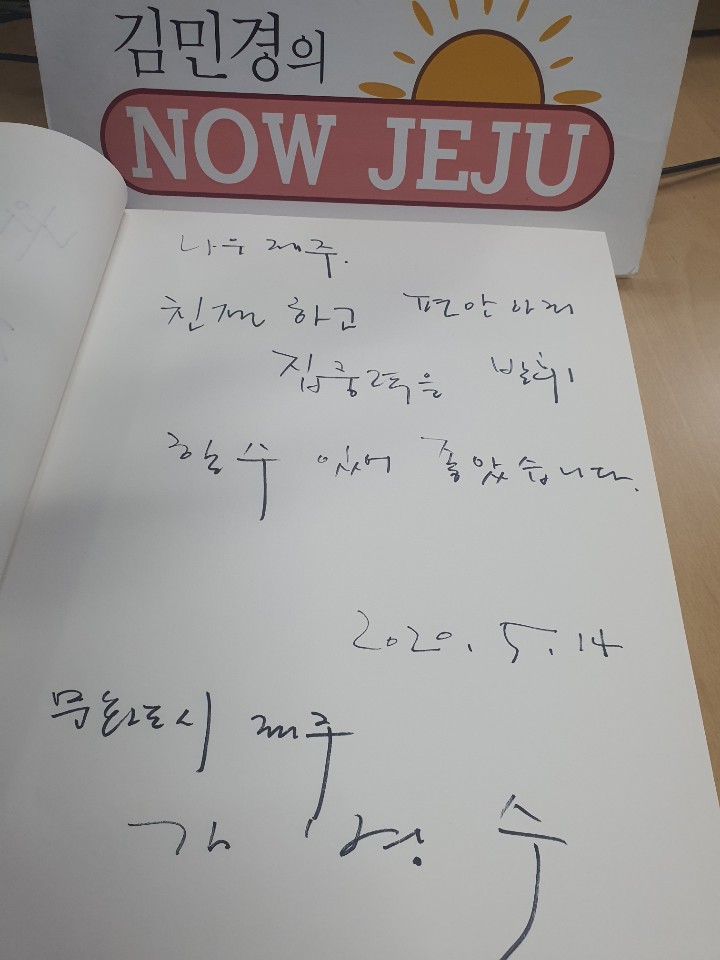 김민경의
NOW JEJU
나우 제주.
친절 하고 편안하게
집중력을 발휘
할 수 있어 좋았습니다.
2020. 5. 14
문화도시 제주
수